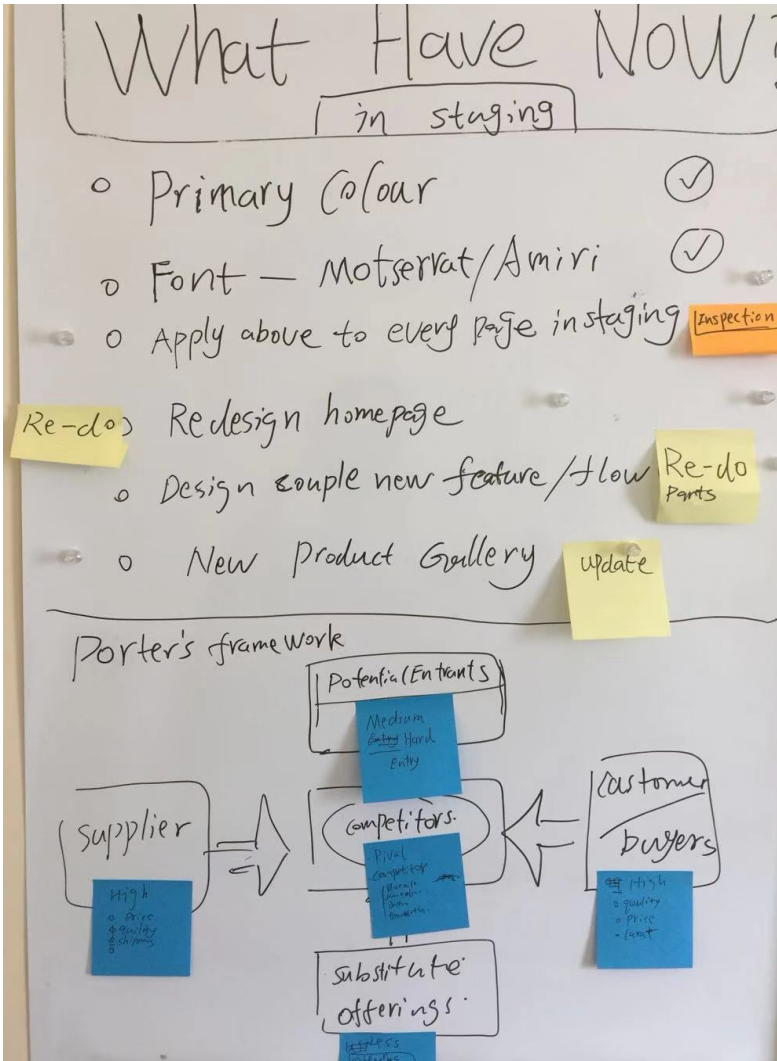 What Have Now?
in staging
Primary Colour
Font — Motserrat/Amiri
Apply above to every page in staging
Inspection
Re-do
Redesign homepage
Design couple new feature/flow
Re-do
Parts
New Product Gallery
update
Porter's framework
Potential Entrants
Medium
Hard
Entry
Supplier
High
Price
quility
shipping
Competitors.
Rival
Competitor
Customer
buyers
High
quality
Price
Substitute
offerings.